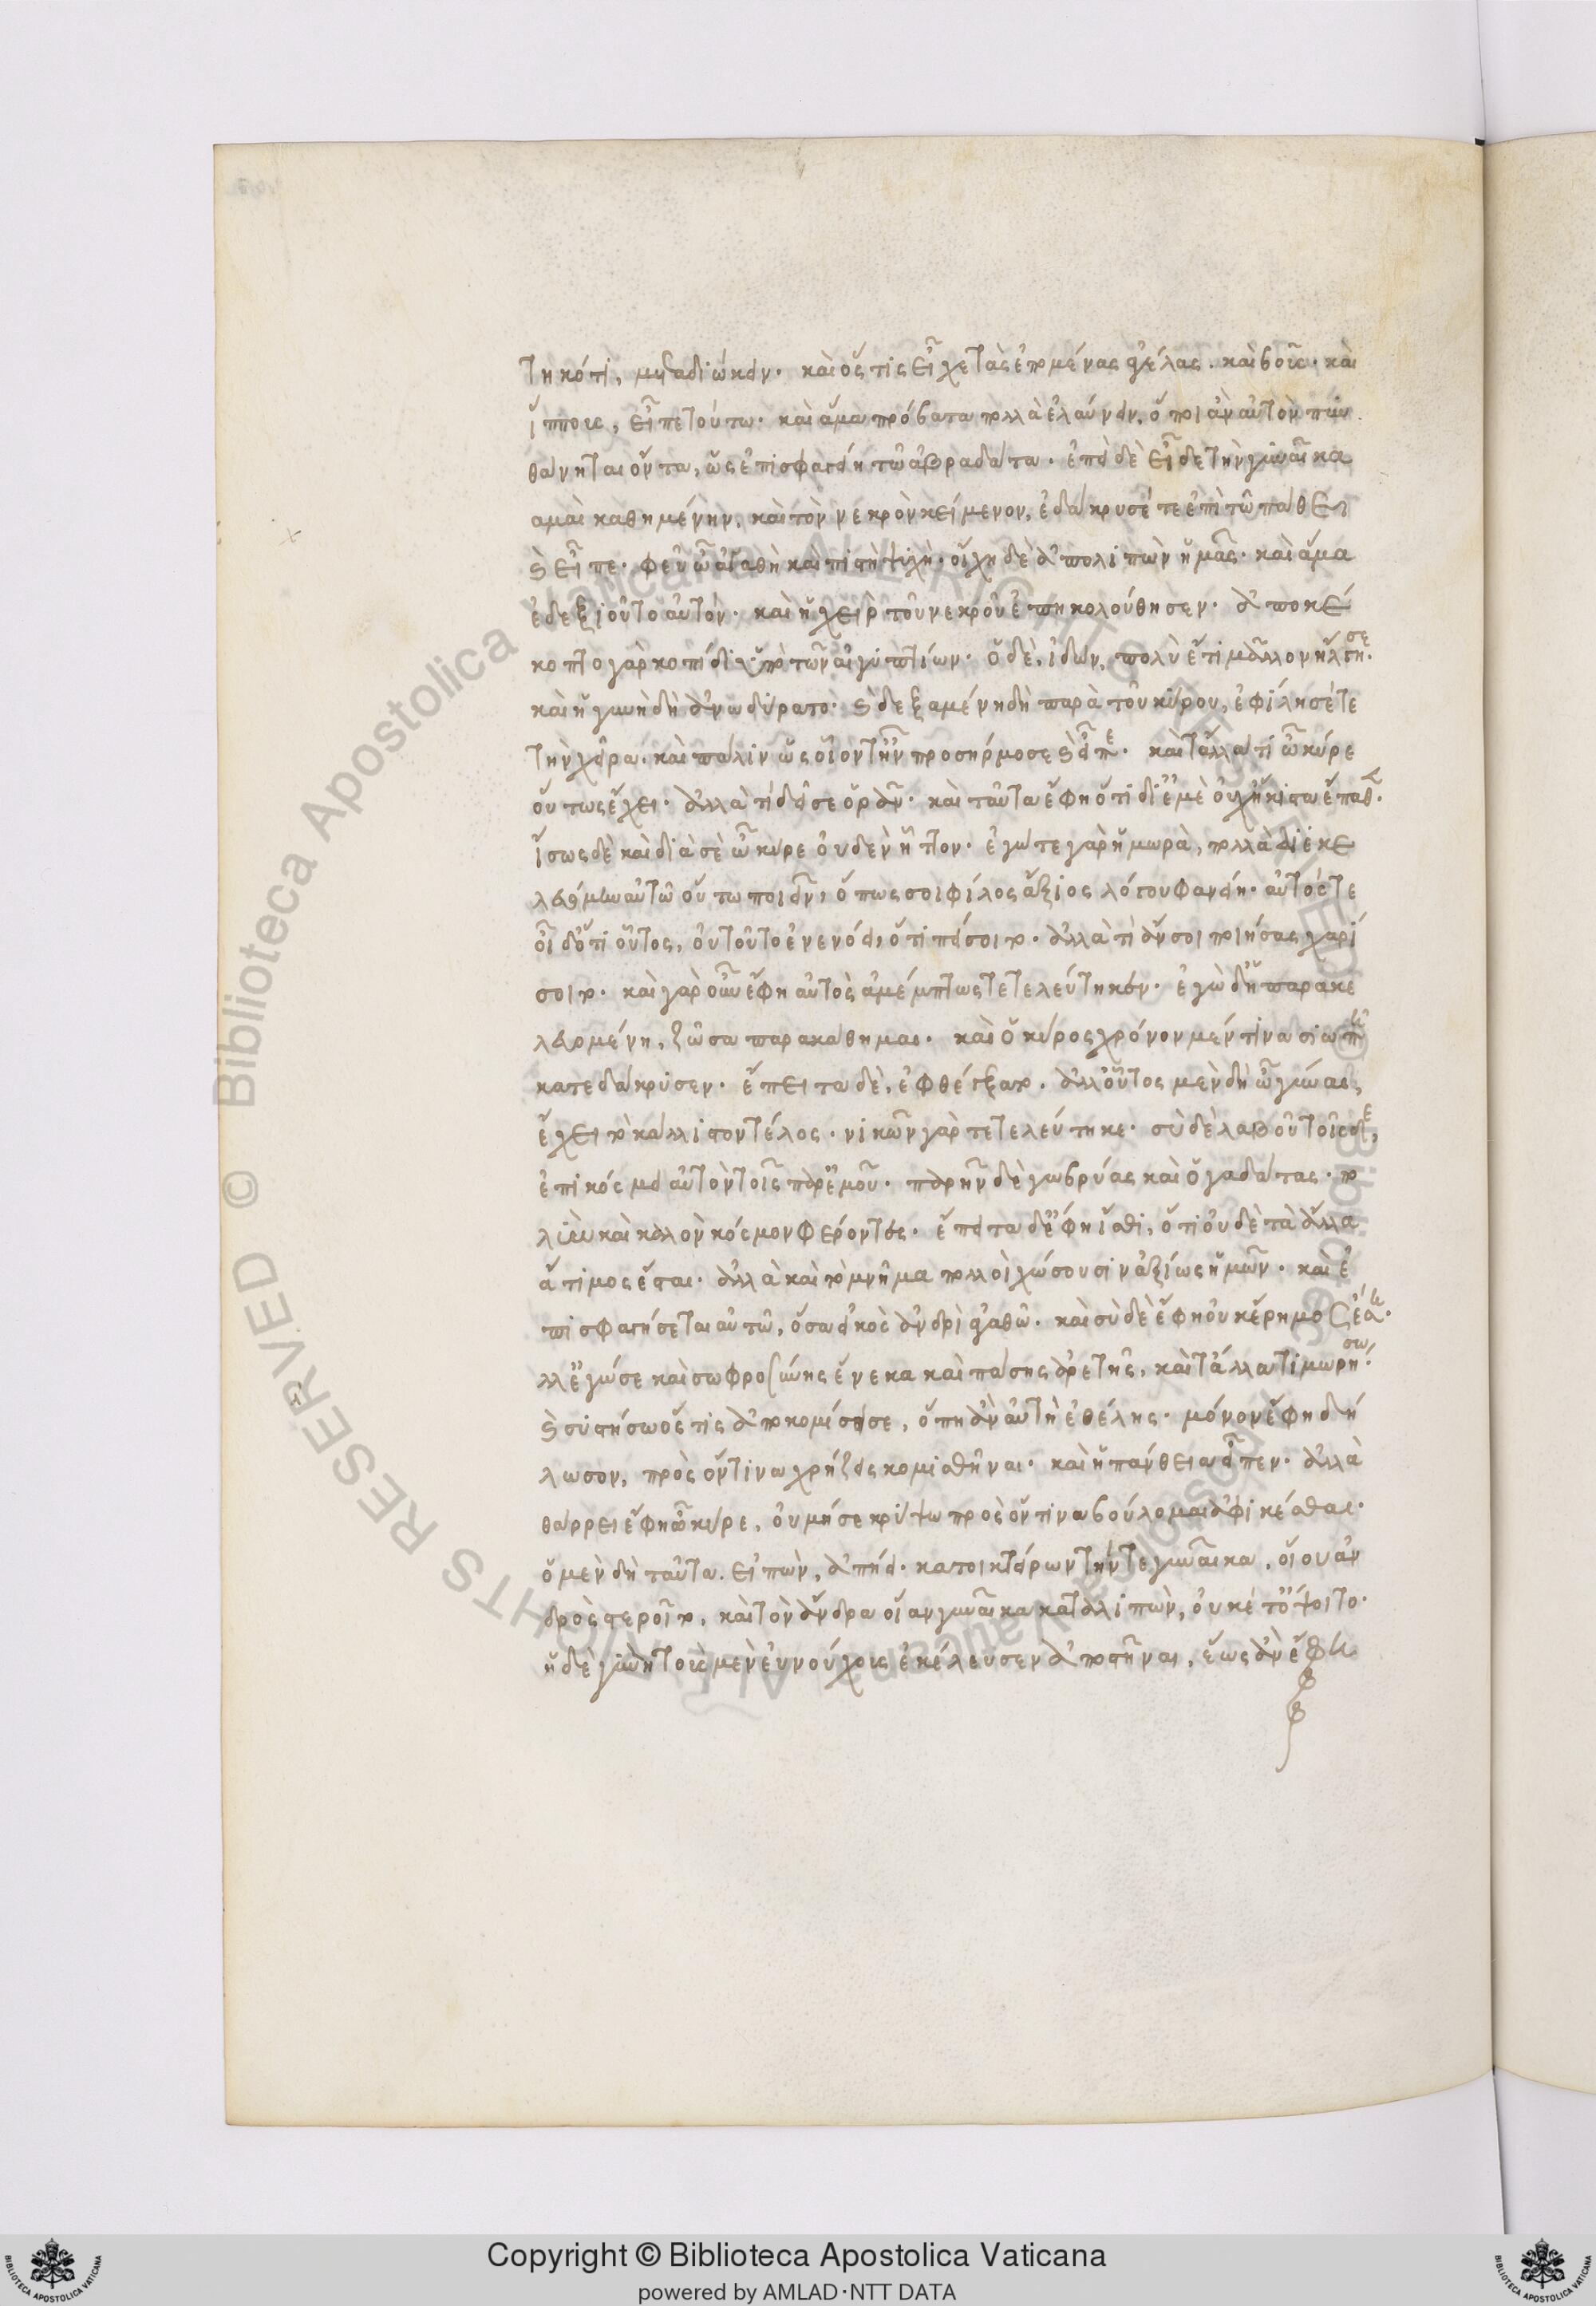 τηκότι, μεταδιώκειν. καὶ ὅςτις εἶχε τὰς ἑπομένας ἀγέλας. καὶ βοῦς. καὶ
ἵππους, εἶπε τούτω. καὶ ἅμα πρόβατα πολλὰ ἐλαύνειν, ὅποι ἂν αὐτὸν πυν
θάνηται ὄντα, ὡς ἐπισφαγείη τῶ ἀβραδάτα. ἐπεὶ δὲ εἶδε τὴν γυναῖκα
χαμαὶ καθημένην, καὶ τὸν νεκρὸν κείμενον, ἐδάκρυσέ τε ἐπὶ τῶ πάθει
καὶ εἶπε. φεῦ ὦ ἀγαθὴ καὶ πιστὴ ψυχὴ. οἴχη δὲ ἀπολιπὼν ἡμᾶς. καὶ ἅμα
ἐδεξιοῦτο αὐτόν. καὶ ἡ χεὶρ τοῦ νεκροῦ ἐπηκολούθησεν. ἀποκέ
κοπτο γὰρ κοπίδι ὑπὸ τῶν αἰγυπτίων. ὁ δὲ, ἰδὼν, πολὺ ἔτι μᾶλλον ἤλγησε.
καὶ ἡ γυνὴ δὴ ἀνωδύρατο. καὶ δεξαμένη δὴ παρὰ τοῦ κύρου, ἐφίλησέ τε
τὴν χεῖρα. καὶ πάλιν ὡς οἷόν τ' ἦν προσήρμοσε καὶ εἶπε. καὶ τἄλλά τι ὦ κύρε
οὕτως ἔχει. ἀλλὰ τί δεῖ σε ὁρᾶν. καὶ ταῦτα ἔφη ὅτι δι' ἐμὲ οὐχ ἥκιστα ἔπαθεν.
ἴσως δὲ καὶ διὰ σὲ ὦ κύρε οὐδὲν ἧττον. ἐγώ τε γὰρ ἡ μωρὰ, πολλὰ διεκε
λευόμην αὐτῶ οὕτω ποιεῖν, ὅπως σοι φίλος ἄξιος λόγου φανείη. αὐτός τε
οἶδ' ὅτι οὗτος, οὐ τοῦτο ἐνενόει, ὅτι πείσοιτο. ἀλλὰ τί ἄν σοι ποιήσας χαρί
σοιτο. καὶ γὰρ οὖν ἔφη αὐτὸς ἀμέμπτως τετελεύτηκεν. ἐγὼ δ' ἡ παρακε
λευομένη, ζῶσα παρακάθημαι. καὶ ὁ κύρος χρόνον μέν τινα σιωπῆ
κατεδάκρυσεν. ἔπειτα δὲ, ἐφθέγξατο. ἀλλ' οὗτος μὲν δὴ ὦ γύναι,
ἔχει τὸ κάλλιστον τέλος. νικῶν γὰρ τετελεύτηκε. σὺ δὲ λαβοῦ τοῖσδε,
ἐπικόσμει αὐτὸν τοῖς παρ' ἐμοῦ. παρῆν δὲ γωβρύας καὶ ὁ γαδάτας. πο
λὺν καὶ καλὸν κόσμον φέροντες. ἔπειτα δ' ἔφη ἴσθι, ὅτι οὐδὲ τὰ ἄλλα
ἄτιμος ἔσται. ἀλλὰ καὶ τὸ μνῆμα πολλοὶ χώσουσιν ἀξίως ἡμῶν. καὶ ἐ
πισφαγήσεται αὐτῶ, ὅσα εἰκὸς ἀνδρὶ ἀγαθῶ. καὶ σὺ δὲ ἔφη οὐκ ἔρημος ἔση.
ἀλλ' ἐγώ σε καὶ σωφροσύνης ἕνεκα καὶ πάσης ἀρετῆς, καὶ τἄλλα τιμωρήσω.
καὶ συστήσω ὅςτις ἀποκομίσει σε, ὅπη ἂν αὐτὴ ἐθέλης. μόνον ἔφη δή
λωσον, πρὸς ὅντινα χρήζεις κομισθῆναι. καὶ ἡ πάνθεια εἶπεν. ἀλλὰ
θάρρει ἔφη ὦ κύρε, οὐ μή σε κρύψω πρὸς ὅντινα βούλομαι ἀφικέσθαι.
ὁ μὲν δὴ ταῦτα. εἰπὼν, ἀπήει. κατοικτείρων τήν τε γυναῖκα, οἵου ἀν
δρὸς στεροῖτο, καὶ τὸν ἄνδρα οἵαν γυναῖκα καταλιπὼν, οὐκέτ' ὄψοιτο.
ἡ δὲ γυνὴ τοὺς μὲν εὐνούχους ἐκέλευσεν ἀποστῆναι, ἕως ἂν ἔφη
Copyright © Biblioteca Apostolica Vaticana
powered by AMLAD·NTT DATA